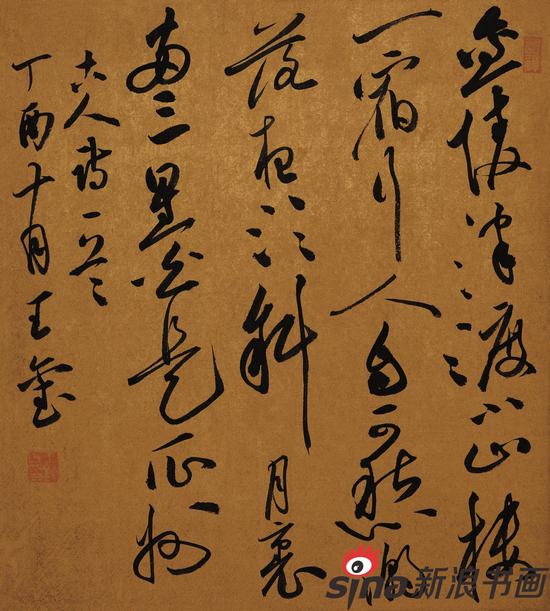 金陵津渡小山楼
一宿行人自可愁潮
落夜江斜月裏
兩三星火是瓜州
古人詩一首
丁酉十月王
sina新浪书画